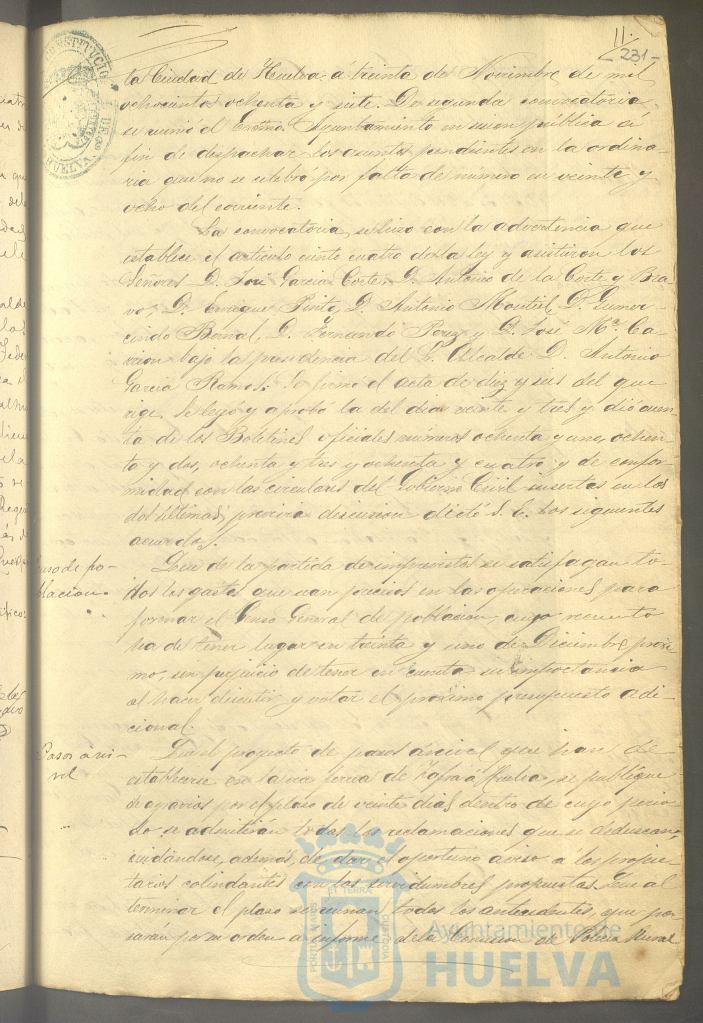 11.
231-
CONSTITUCIO
HUELVA
la Ciudad de Huelva á treinta de Noviembre de mil
ochocientos ochenta y siete. De segunda convocatoria
se reunió el Excmo. Ayuntamiento en sesion pública á
fin de despachar los asuntos pendientes en la ordina-
ria que no se celebró por falta de número en veinte y
ocho del corriente.
La convocatoria se hizo con la advertencia que
establece el artículo ciento cuatro de la ley y asistieron los
Señores D. José García Cortes, D. Antonio de la Corte y Bra-
vo, D. Enrique Pinto, D. Antonio Montiel, D. Gumer-
cindo Bernal, D. Fernando Perez y D. José Mª. Ca-
rrion bajo la presidencia del Sr. Alcalde D. Antonio
García Ramos. Se firmó el acta de diez y seis del que
rige, se leyó y aprobó la del dia veinte y tres y dió cuen-
ta de los Boletines oficiales números ochenta y uno, ochen-
ta y dos, ochenta y tres y ochenta y cuatro y de confor-
midad con las circulares del Gobierno Civil insertas en los
dos últimos, prévia discusion dictó S. E. los siguientes
acuerdos.
Censo de po-
blacion.
Que de la partida de imprevistos se satisfagan to-
dos los gastos que sean precisos en las operaciones para
formar el Censo General de poblacion, cuyo recuento
ha de tener lugar en treinta y uno de Diciembre proxi-
mo, sin perjuicio de tener en cuenta su importancia
al hacer discutir y votar el próximo presupuesto adi-
cional.
Pasos á ni-
vel
Que el proyecto de pasos á nivel que han de
establecerse en la via ferrea de Zafra á Huelva, se publique
de agravios por el plazo de veinte dias dentro de cuyo perio-
do se admitirán todas las reclamaciones que se deduzcan,
cuidándose, además, de dar el oportuno aviso á los propie-
tarios colindantes con las servidumbres propuestas. Que al
terminar el plazo se reunan todos los antecedentes, que pa-
sarán por su orden á informe de la Comision de Policia Rural
PORTUS MARIS ET TERRA CUSTODIA
Ayuntamiento de
HUELVA